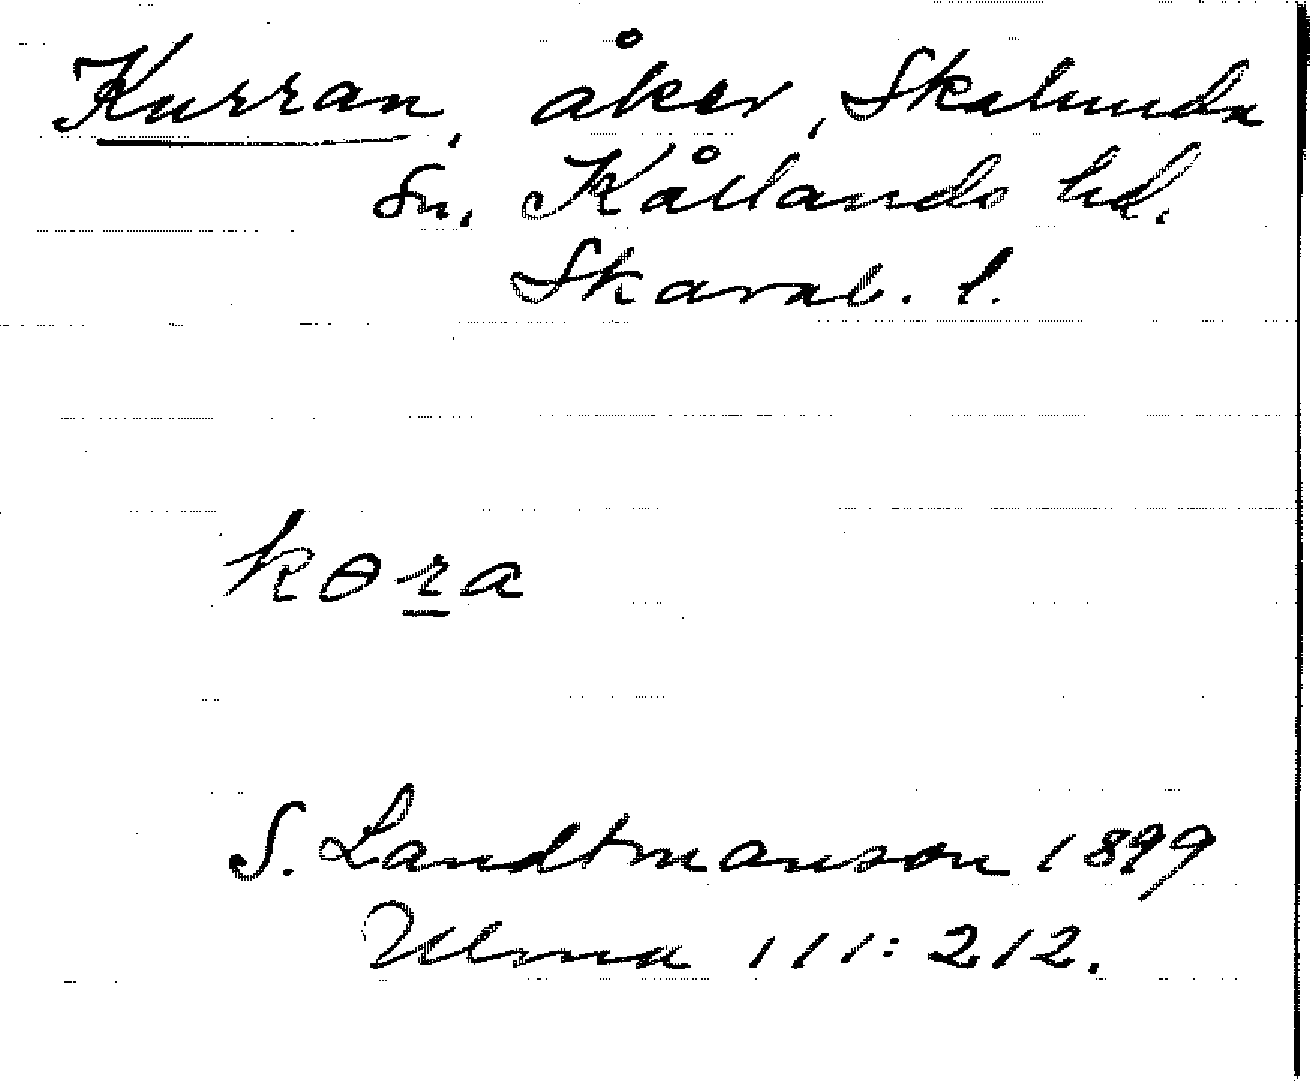 Kurran, åker, Skalunda
sn. Kållands hd.
Skarab. l.
kɵra
S. Landtmanson 1899
Ulma 111: 212.